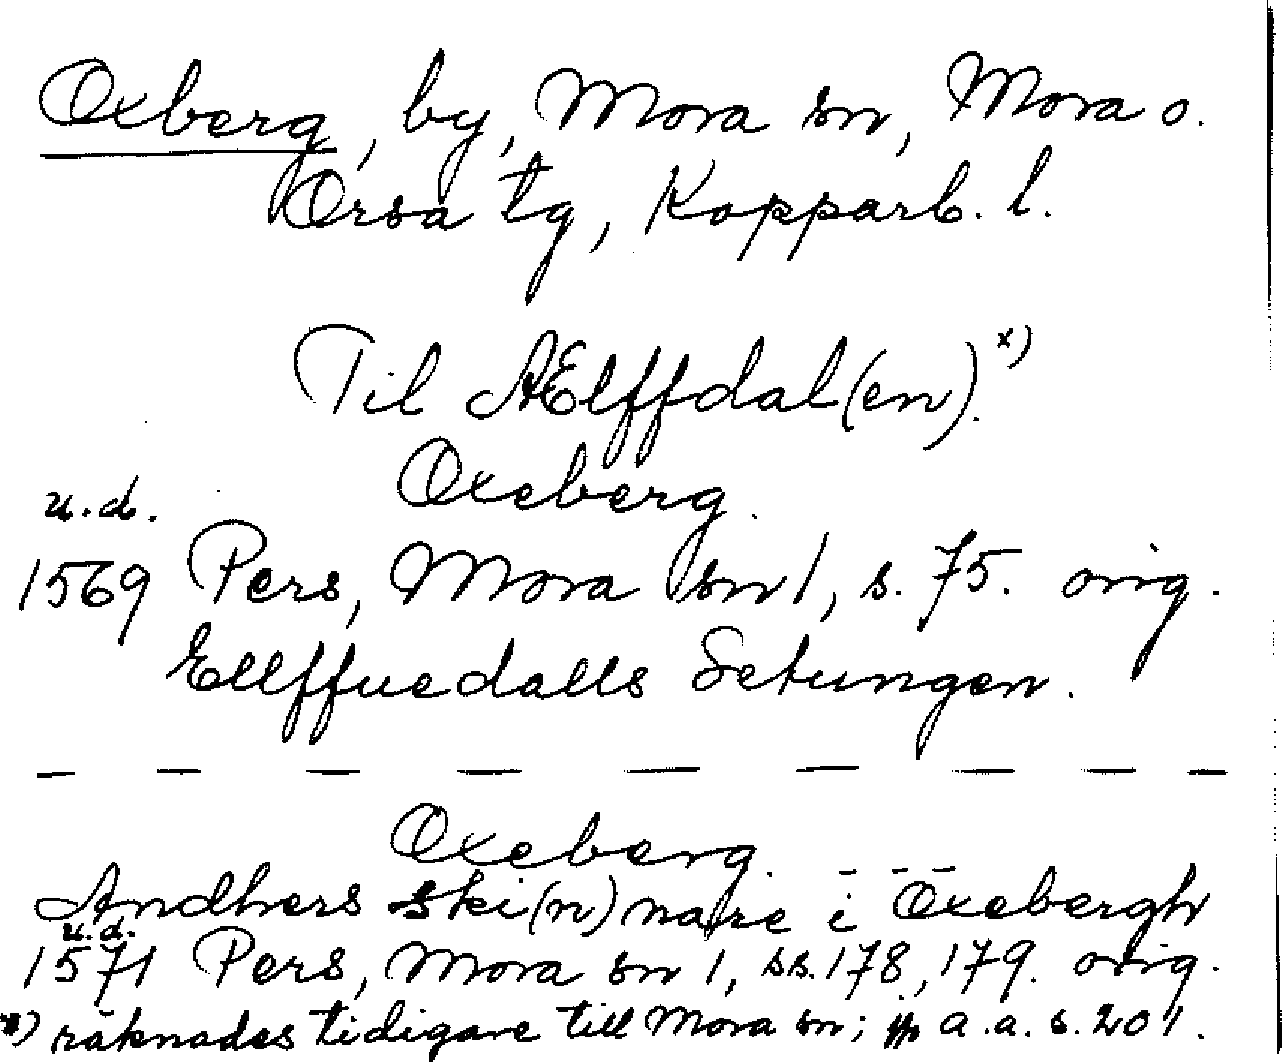 Oxberg, by, Mora sn, Mora o.
Orsa tg, Kopparb. l.
Til AElffdal(en).x)
Oxeberg.
u.d.
1569 Pers, Mora sn 1, s. 75. orig.
Ellffuedalls Setungen.
— — — — — — — — —
Oxeberg.
Andhers ski(n)nare i Oxebergh
u.d.
1571 Pers, Mora sn 1, ss. 178, 179. orig.
x) räknades tidigare till Mora sn; a.a. s. 201.